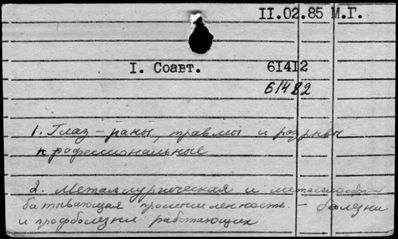 II.02.85 М.Г.
I. Соавт. 61412
61482
1. Глаз - раны, травмы и разрывы
профессиональные
2. Металлургическая и металлообра-
батывающая промышленность - болезни
и профболезни работающих